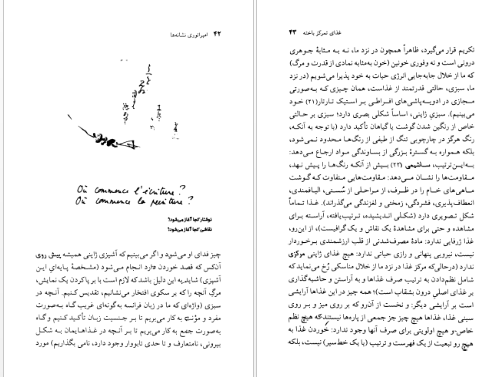 ۴۲ امپراتوری نشانه‌ها
Où commence l'écriture?
Où commence la peinture?
نوشتار کجا آغاز می‌شود؟
نقاشی کجا آغاز می‌شود؟
چیز فدای او می‌شود و اگر می‌بینیم که آشپزی ژاپنی همیشه پیش روی
آنکس که قصد خوردن دارد انجام می‌شود (مشخصهٔ پایه‌ای این
آشپزی) شاید به این دلیل باشد که لازم است با برپا کردن یک نمایش،
مرگ آنچه را که بر سکوی افتخار می‌نشانیم، تقدیس کنیم. آنچه در
سبزی (واژه‌ای که ما در زبان فرانسه به گونه‌ای غریب گاه به‌صورت
مفرد و مؤنث به کار می‌بریم تا بر جنسیت زبان تأکید کنیم و گاه
به‌صورت جمع به کار می‌بریم تا بر آنچه در غذاهایمان به شکل
بیرونی، نامتعارف و تا حدی تابووار وجود دارد، نامی بگذاریم) مورد
غذای تمرکز باخته ۴۳
تکریم قرار می‌گیرد، ظاهراً همچون در نزد ما، نه به مثابهٔ جوهری
درونی است و نه وفوری خونین (خون به‌مثابه نمادی از قدرت و مرگ)
که ما از خلال جابه‌جایی انرژی حیات به خود پذیرا می‌شویم (در نزد
ما، سبزی، حالتی قدرتمند از غذاست، همان چیزی که به‌صورتی
مجازی در ادویه‌پاشی‌های افراطی بر استیک تارتار(۲۱) خود
می‌بینیم). سبزی ژاپنی، اساساً شکلی بصری دارد؛ سبزی بر حالتی
خاص از رنگین شدن گوشت یا گیاهان تأکید دارد (با توجه به آنکه،
رنگ هرگز در چارچوبی تنگ از طیفی از رنگ‌ها محدود نمی‌شود،
بلکه همواره به گسترهٔ بزرگی از بساوندگی مواد ارجاع می‌دهد؛
به‌این‌ترتیب، ساشیمی (۲۲) بیش از آنکه رنگ‌ها را پیش نهد،
مقاومت‌ها را نشان می‌دهد: مقاومت‌هایی متفاوت که گوشت
ماهی‌های خام را در ظرف، از مراحلی از سُستی، الیافمندی،
انعطاف‌پذیری، فشردگی، زمختی و لغزندگی می‌گذراند). غذا تماماً
شکل تصویری دارد (شکلی اندیشیده، ترتیب‌یافته، آراسته برای
مشاهده، و حتی برای مشاهدهٔ یک نقاش و یک گرافیست)، از این‌رو،
غذا ژرفایی ندارد: مادهٔ مصرف‌شدنی از قلب ارزشمندی برخوردار
نیست، نیرویی پنهانی و رازی حیاتی ندارد: هیچ غذای ژاپنی مرکزی
ندارد (درحالی‌که مرکز غذا در نزد ما از خلال مناسکی رخ می‌نماید که
شامل نظم‌دادن به ترتیب صرف غذاها و به آراستن و حاشیه‌گذاری
اجزای اصلی درون بشقاب است)؛ همه چیز در این غذاها آرایشی
است بر آرایشی دیگر: و نخست از آن‌رو که بر روی میز و بر روی
سینی غذا، غذاها هیچ چیز جز جمعی از پاره‌ها نیستند که هیچ نظم
خاص و هیچ اولویتی برای صرف آنها وجود ندارد: خوردن غذا به
هیچ رو تبعیت از یک فهرست و ترتیب (یا یک خط‌سیر) نیست، بلکه